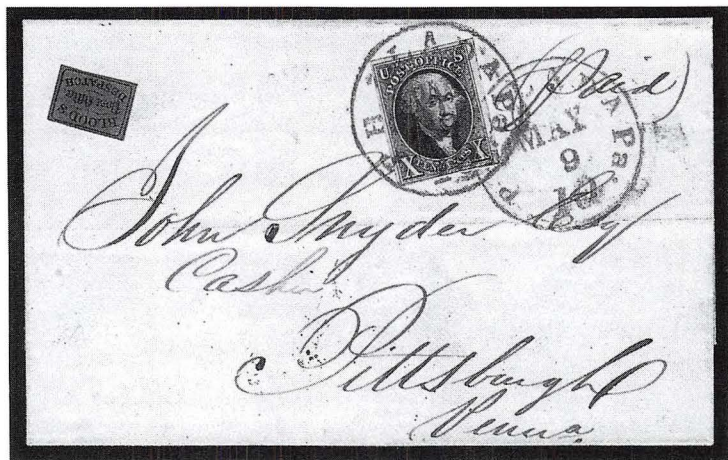 BLOOD'S
Post Office
DESPATCH
PHILADA Pa
U S
POST OFFICE
X TEN CENTS X
Paid
P A Pa
MAY
9
10
John Snyder Esq
Cashier
Pittsburgh
Penna